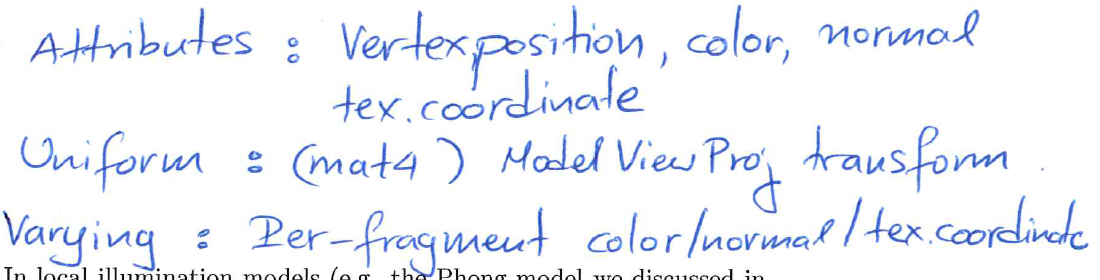 Attributes : Vertexposition, color, normal
tex.coordinate
Uniform : (mat4) ModelViewProj transform.
Varying : Per-fragment color/normal/tex.coordinate
In local illumination models (e.g., the Phong model we discussed in